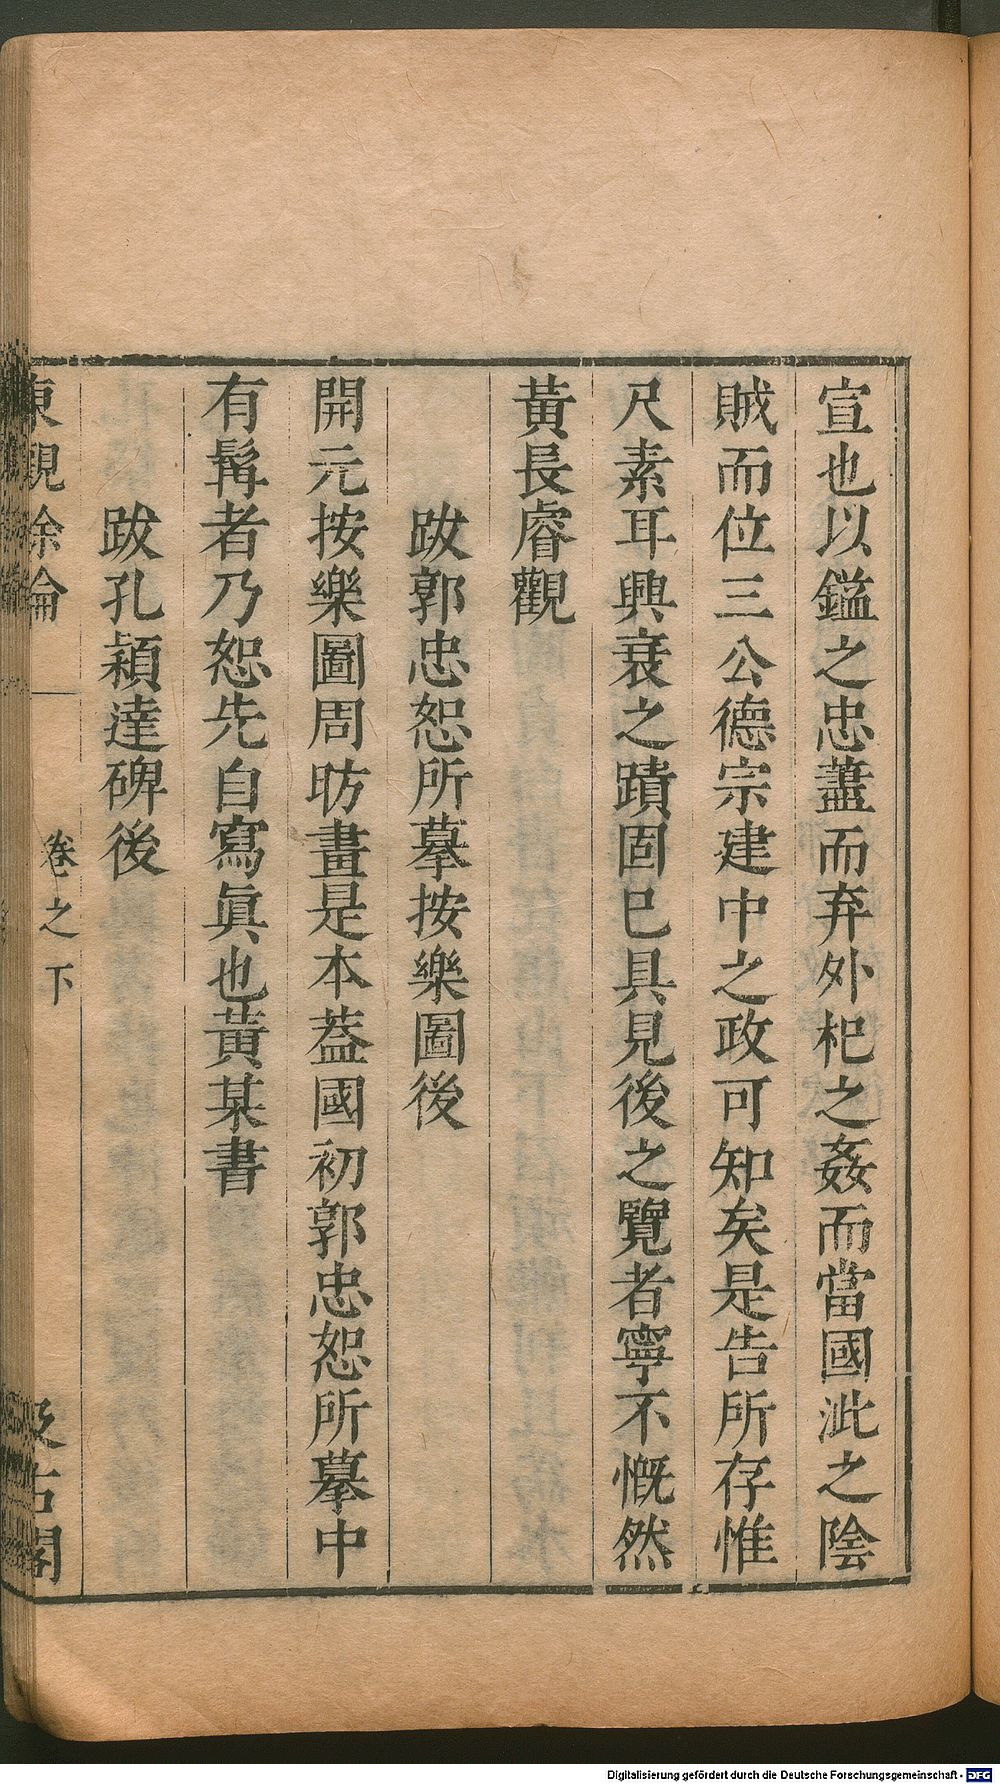 宣也以鑑之忠藎而弃外杞之姦而當國泚之陰
賊而位三公德宗建中之政可知矣是告所存惟
尺素耳興衰之蹟固已具見後之覽者寧不慨然
黃長睿觀
跋郭忠恕所摹按樂圖後
開元按樂圖周昉畫是本葢國初郭忠恕所摹中
有髯者乃恕先自寫眞也黃某書
跋孔穎達碑後
東觀餘論
卷之下
汲古閣
Digitalisierung gefördert durch die Deutsche Forschungsgemeinschaft - DFG